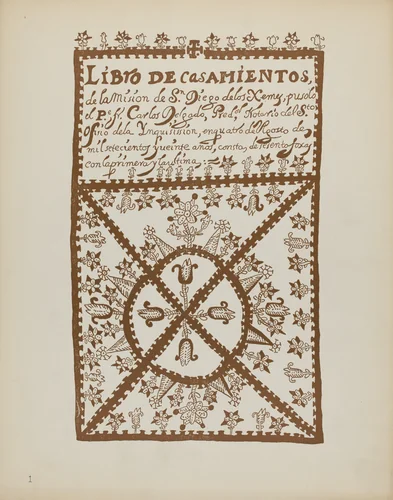 LIBrO DE CaSAMIENTOS,
de la Mision de Sn. Diego delos Xemes, pusolo
el Pe. fr. Carlos Delgado, Pred.r Notario del Sto.
Ofizio dela Ynquisision, en quatro de Agosto de
mil setecientos y veinte años, consta de foxas
con la primera y la ultima:
1